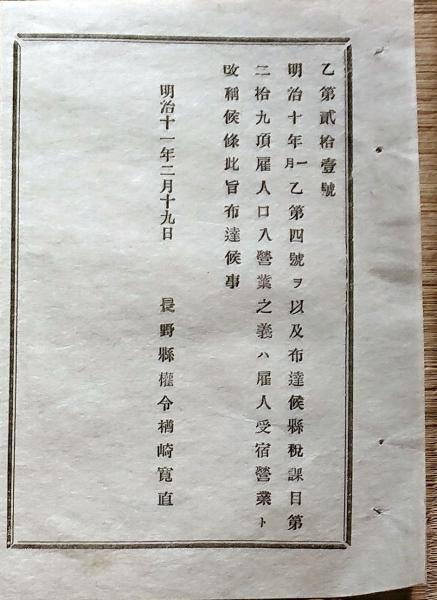 乙第貳拾壹號
明治十年一月乙第四號ヲ以及布達候縣税課目第
二拾九項雇人口入營業之義ハ雇人受宿營業ト
改稱候條此旨布達候事
明治十一年二月十九日
長野縣權令楢崎寛直